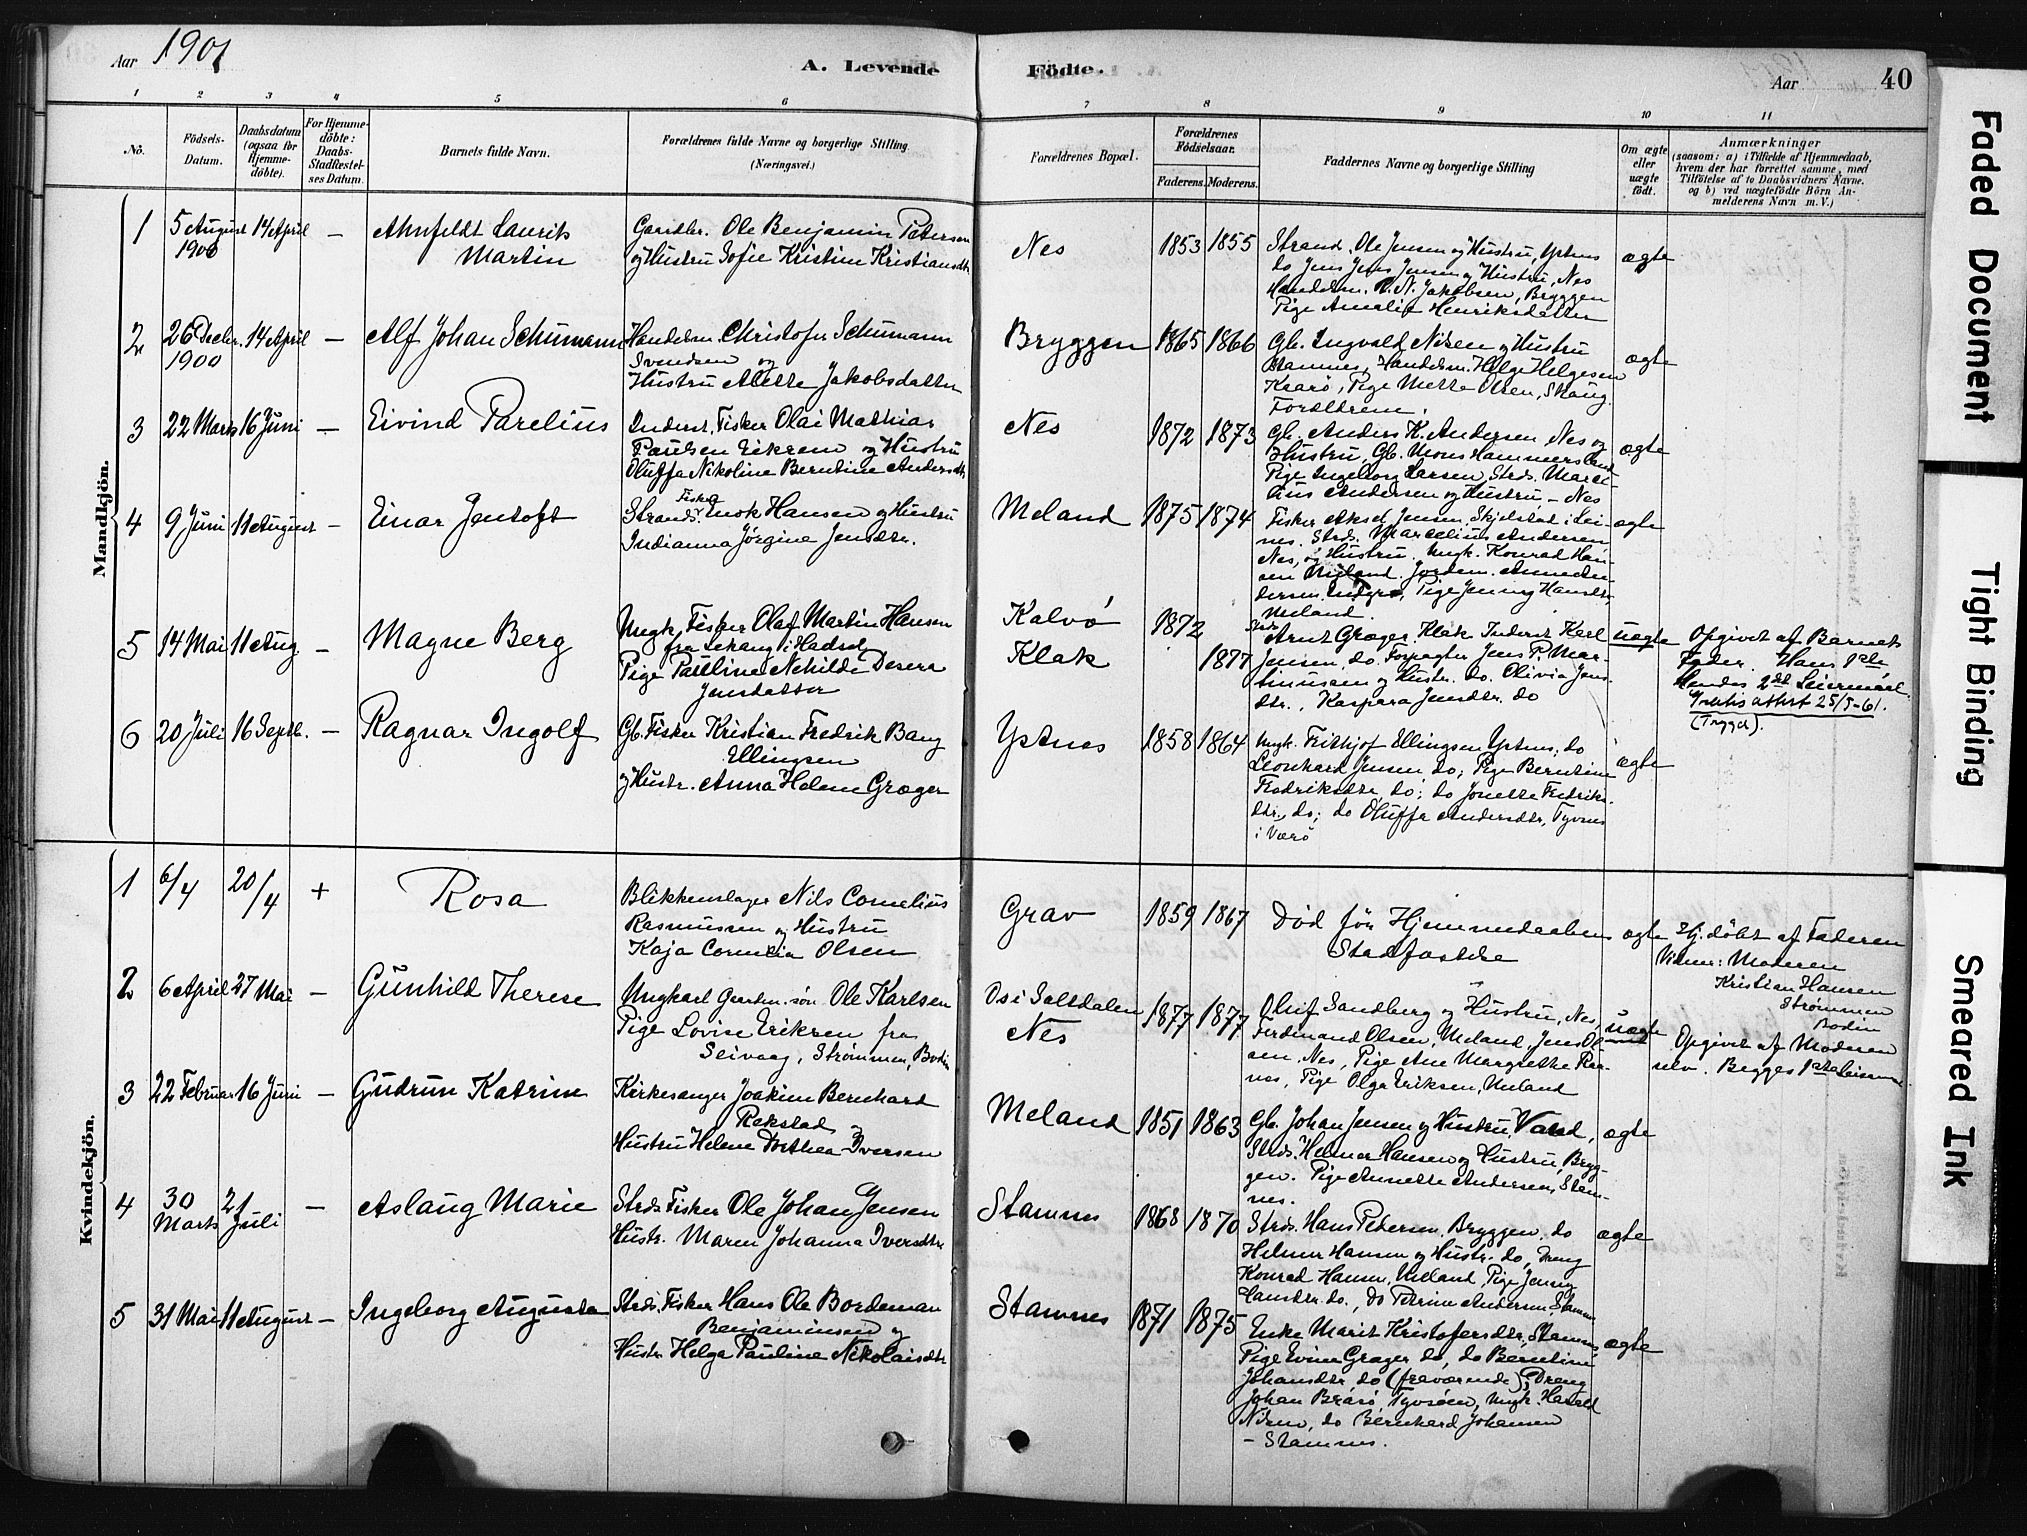 Aar 1901
A. Levende
Födte.
Aar
40
1 2 3 4 5 6 7 8 9 10 11
No.
Födsels-
Datum.
Daabsdatum
(ogsaa for
Hjemme-
döbte).
For Hjemme-
döbte:
Daabs-
Stadfæstel-
ses Datum.
Barnets fulde Navn.
Forældrenes fulde Navne og borgerlige Stilling
(Næringsvei.)
Forældrenes Bopæl.
Forældrenes
Födselsaar.
Faderens. Moderens.
Faddernes Navne og borgerlige Stilling
Om ægte
eller
uægte
födt.
Anmærkninger
(saasom: a) i Tilfælde af Hjemmedaab,
hvem der har forrettet samme, med
Tilföielse af to Daabsvidners Navne,
og b) ved uægtefödte Börn An-
melderens Navn m. V.)
Mandkjön.
1
5 August
1900
14 April
—
Ahnfeldt Laurits
Martin
Gaardbr. Ole Benjamin Petersen
og Hustru Sofie Kristine Kristiansdtr
Nes
1853 1855
Strand. Ole Jensen og Hustru, Ystnes
do Jens Jensen og Hustru, Nes
Handelsm. Jakobsen, Bryggen
Pige Amalie Henriksdatter
ægte
2
26 Decbr.
1900
14 April
—
Alf Johan Schumann
Handelsm. Christofer Schumann
Svendsen og
Hustru Alette Jakobsdatter
Bryggen
1865 1866
Gb. Ingvald Nilsen og Hustru
Stamnes, Handelsm. Helge Helgesen
Pige Mette Olsen, Skaug.
Forældrene.
ægte
3
22 Marts
16 Juni
—
Eivind Parelius
Inderst. Fisker Olai Mathias
Paulsen Eikrem og Hustru
Oluffa Nikoline Berntine Andersdtr
Nes
1872 1873
Gb. Anders K. Andersen Nes og
Hustru, Gb. Mons Hammersland
Pige Ingeborg Larsen, Strds. Marce-
lius Andersen og Hustru – Nes
ægte
4
9 Juni
11 August
—
Einar Jentoft
Strands. Fisker Enok Hansen og Hustru
Indianna Jørgine Jensdtr.
Meland
1875 1874
Fisker Aksel Jensen Skjelstad i Lei-
nes. Strds. Marcelius Andersen
Nes, og Hustru. Ungk. Konrad Han-
sen Meland. Jordm. Anne An-
dersen Pige Jenny Hansdtr,
Meland.
ægte
5
14 Mai
11 Aug
—
Magne Berg
Ungk. Fisker Olaf Martin Hansen
fra i Hadsel
Pige Pauline Nehilde Desera
Jensdatter
Kalvø
Klak
1872
1877
Arnt Græger Klak Inderst Karl
Jensen, do. Forpagter Jens P. Mar-
tinussen og Hustr. do. Olivia Jens-
dtr., Kaspara Jensdtr. do
uægte
Opgivet af Barnets
Fader. Hans 1ste
Hendes 2det Leiermaal.
Gratis attest 25/5-61.
(Trygd).
6
20 Juli
16 Septb.
—
Ragnar Ingolf
Gb. Fisker Kristian Fredrik Bang
Ellingsen
og Hustr. Anna Helene Græger
Ystnes
1858 1864
Ungk. Frithjof Ellingsen Ystnes, do
Leonhard Jensen do; Pige Berntine
Fredriksdtr do; do Jonette Fredriks-
dtr, do; do Oluffa Andersdtr, Tyvnes
i Værø
ægte
Kvindekjön.
1
6/4
20/4
+
Rosa
Blikkenslager Nils Cornelius
Rasmussen og Hustru
Kaja Cornelia Olsen
Grav
1859 1867
Død før Hjemmedaabens
Stadfæstelse
ægte
Hj. døbt af Faderen
Vidner: Moderen
Kristian Hansen
Strømmen
Bodin
2
6 April
27 Mai
—
Gunhild Therese
Ungkarl Gaardm. søn Ole Karlsen
Pige Lovise Eriksen fra
Seivaag, Strømmen, Bodin
Os i Saltdalen
Nes
1877 1877
Oluf Sandberg og Hustru, Nes
Ferdinand Olsen, Meland, Jens Ol-
sen, Nes, Pige Ane Margrethe
Pige Olga Eriksen, Meland
uægte
Opgivet af Moderen
selv. Begges 1ste
3
22 Februar
16 Juni
—
Gudrun Katrine
Kirkesanger Joakim Bernhard
Rekstad og
Hustru Helene Dorthea Iversen
Meland
1851 1863
Gb. Johan Jensen og Hustru,
Strds. Helmer Hansen og Hustru, Bryg-
gen. Pige Annette Andersen, Stam-
nes.
ægte
4
30
Marts
21
Juli
—
Aslaug Marie
Strds Fisker Ole Johan Jensen
Hustr. Maren Johanna Iversdtr
Stamnes
1868 1870
Strds. Hans Pedersen, Bryggen, do
Helmer Hansen og Hustr. do, Dreng
Konrad Hansen, Meland, Pige Jenny
Hansdtr. do., do Petrine Andersen, Stamnes
ægte
5
31 Mai
11 August
—
Ingeborg Augusta
Strds Fisker Hans Ole Bordeman
Benjaminsen og
Hustr Helga Pauline Nikolaisdtr
Stamnes
1871 1875
Enke Marit Kristofersdtr, Stamnes,
Pige Evine Græger do, do Berntine
Johansdtr do (fraværende); Dreng
Johan Tyvsøen, Ungk. Harald
Nilsen, do Bernhard Johansen
– Stamnes.
ægte
Faded Document
Tight Binding
Smeared Ink